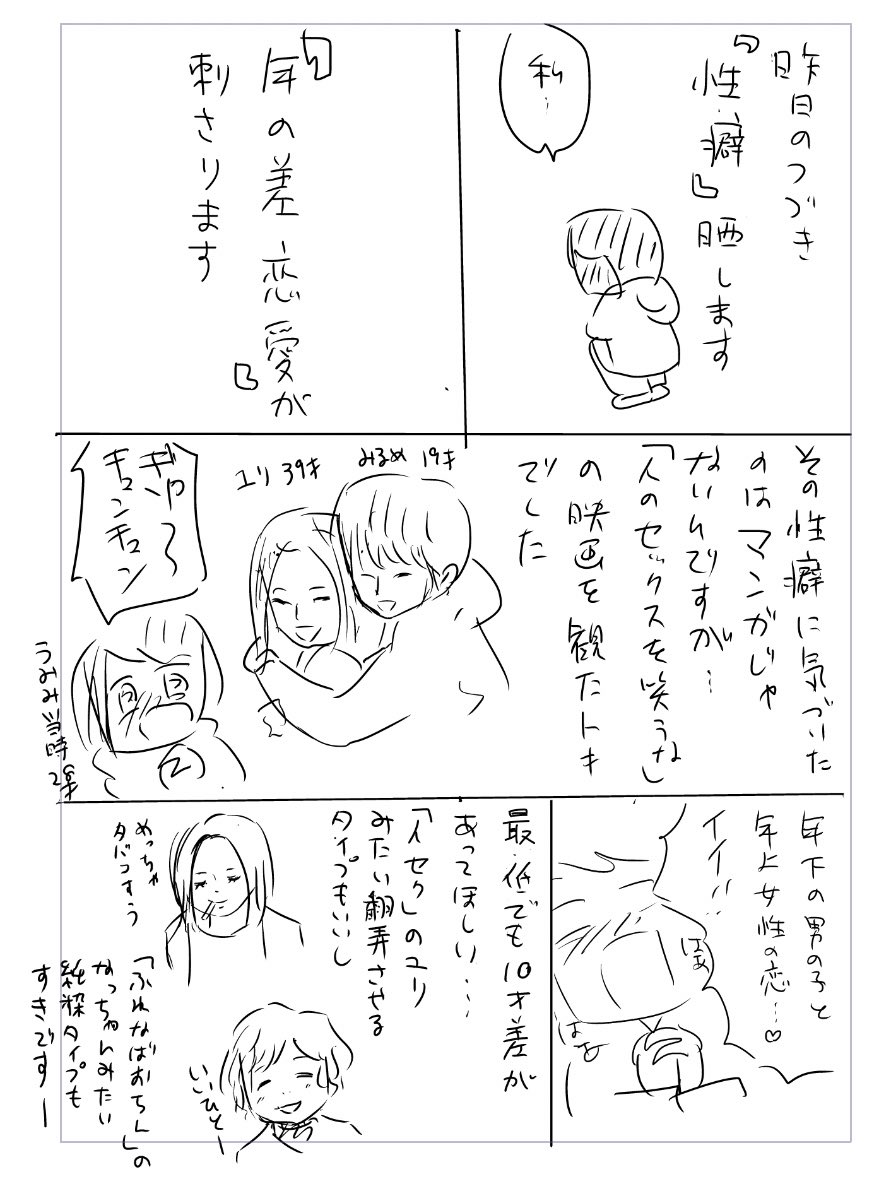 昨日のつづき
『性癖』晒します
私…
『年の差恋愛が』
刺さります
その性癖に気づいた
のはマンガじゃ
ないんですが…
「人のセックスを笑うな」
の映画を観たトキ
でした
みるめ 19才
ユリ 39才
ぎゅ〜
キュンキュン
うみみ当時
28才
年下の男の子と
年上女性の恋…♡
イイ!!
はぁ
はぁ
最低でも10才差が
あってほしい…
「人セク」のユリ
みたい翻弄させる
タイプもいいし
めっちゃ
タバコすう
「ふれなばおちん」の
なっちゃんみたい
純粋タイプも
すきですー
いいひとー